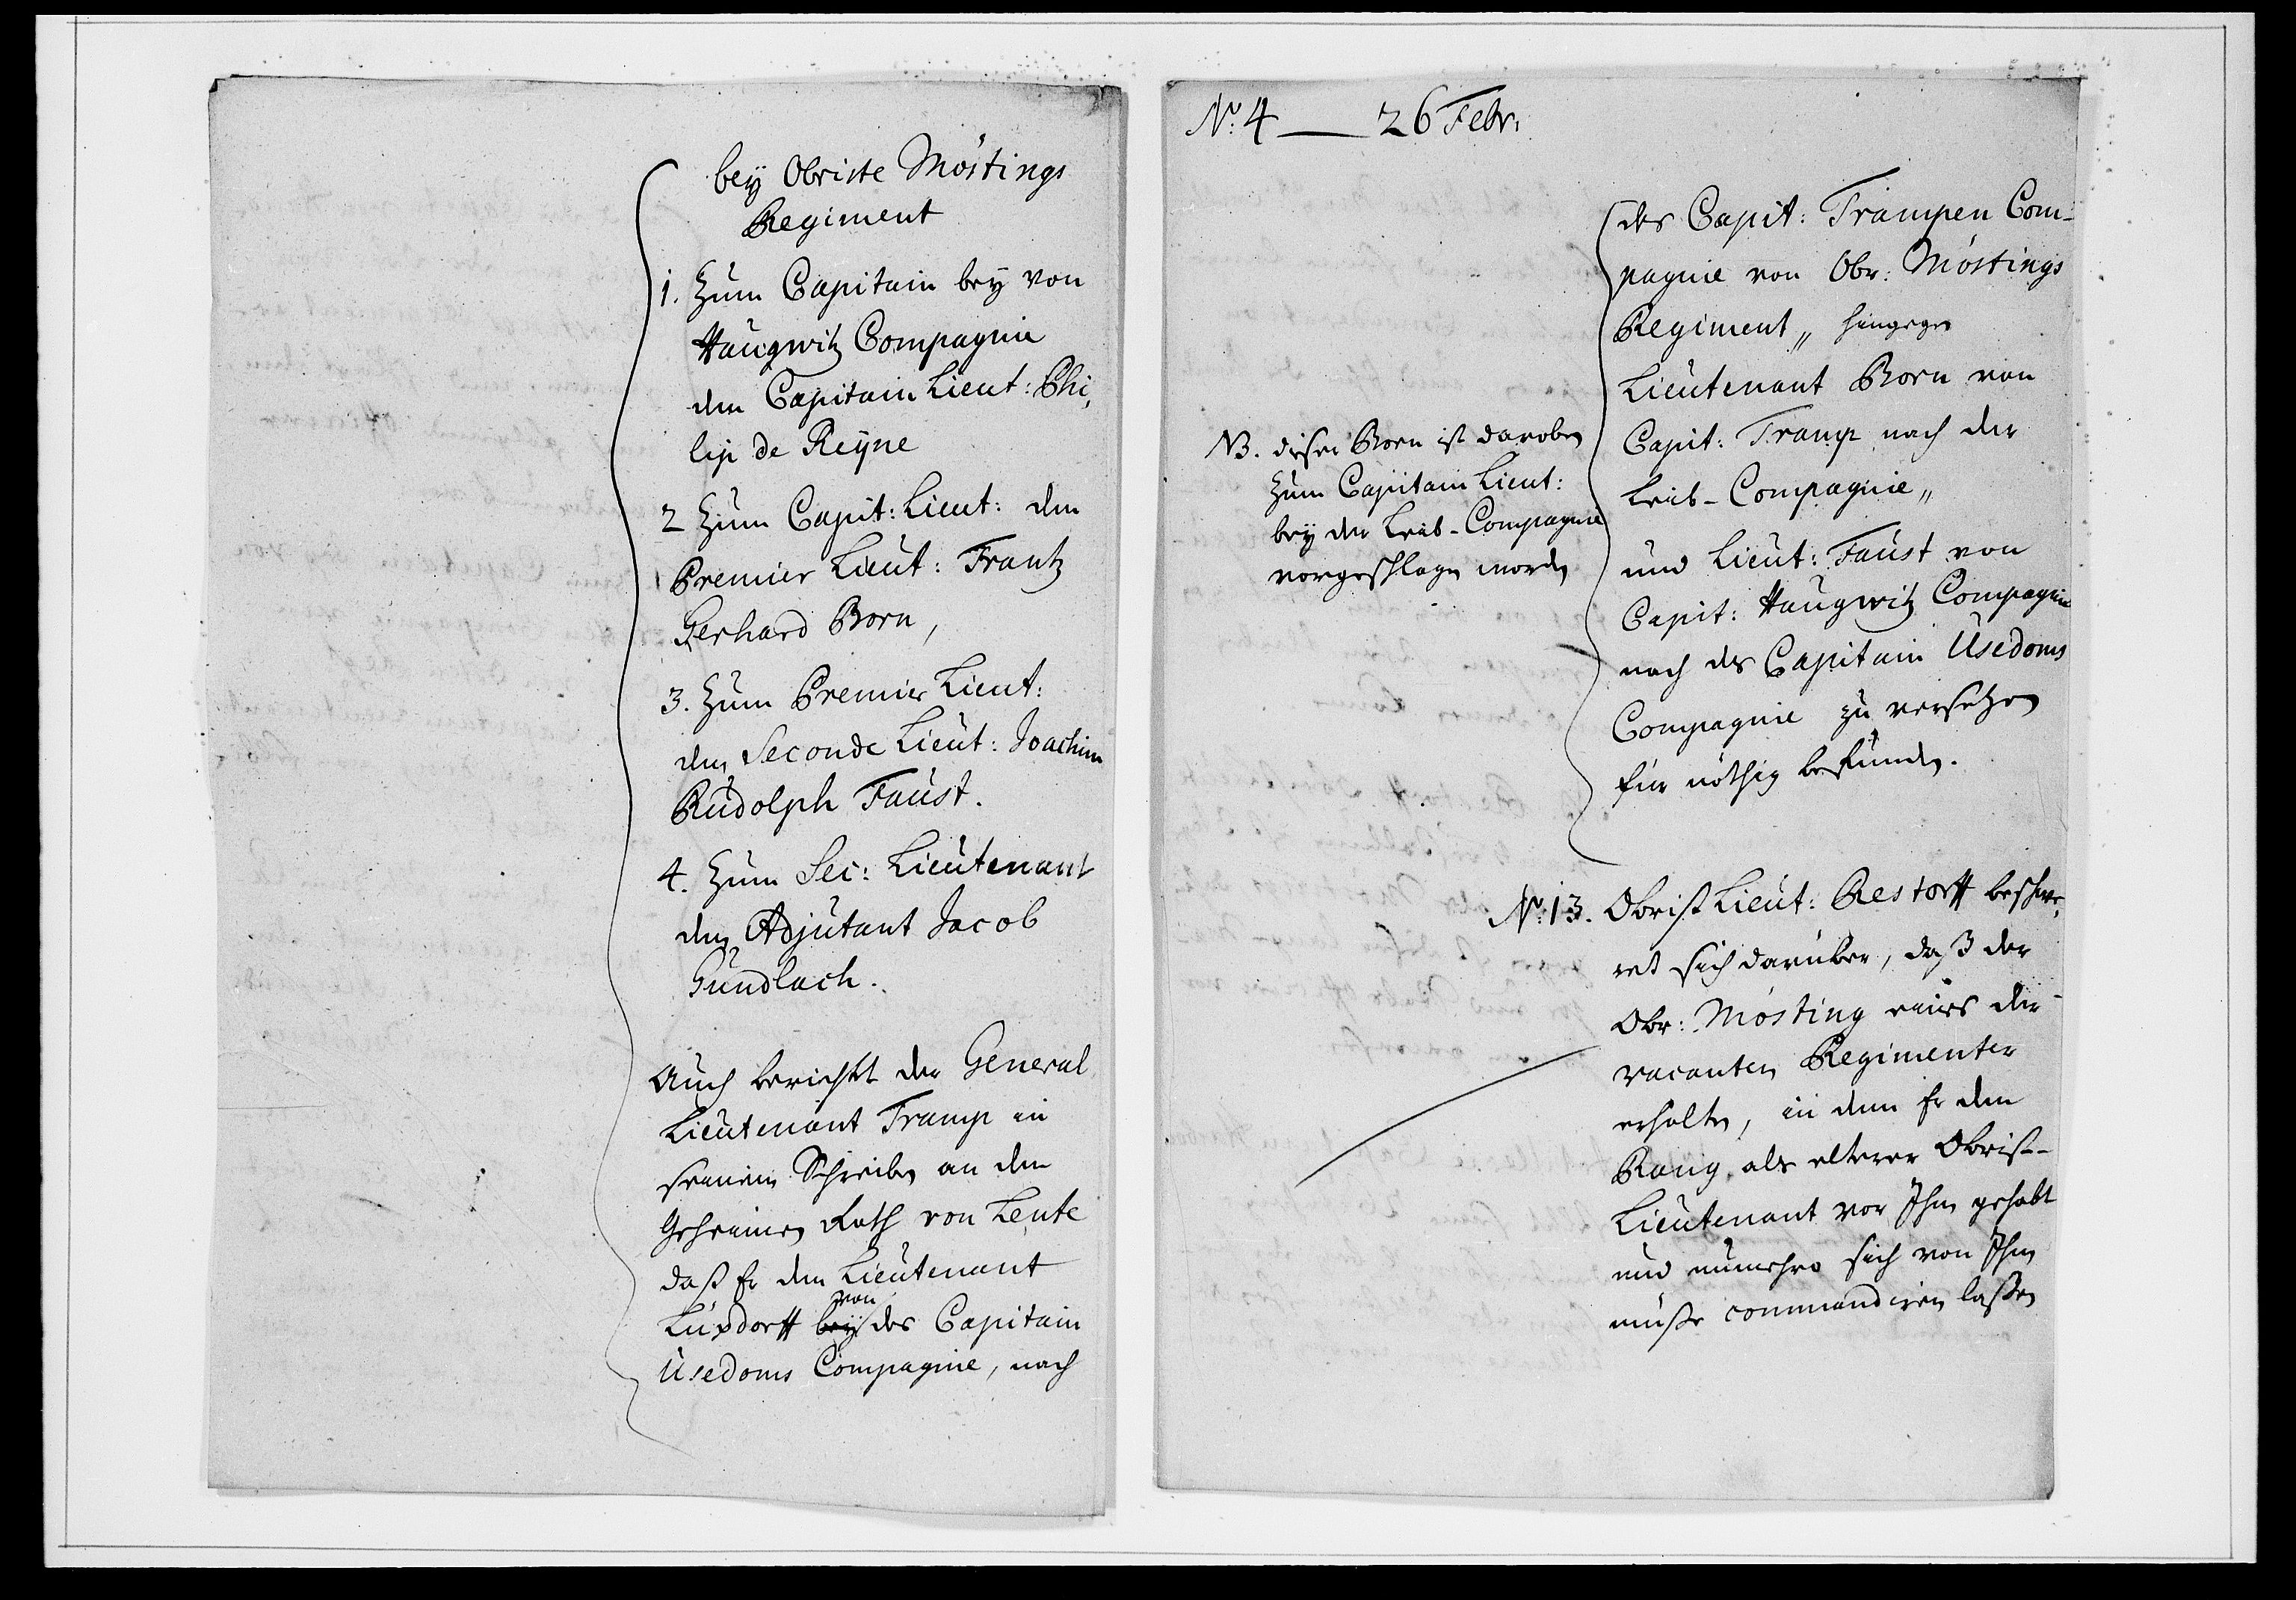 bey Obriste Möstings
Regiment
1. Zum Capitain bey von
Haugwitz Compagnie
den Capitain Lieut: Phi,
lip de Reÿne
2 Zum Capit: Lieut: den
Premier Lieut: Frantz
Gerhard Born,
3. Zum Premier Lieut:
den Seconde Lieut: Joachim
Rudolph Faust.
4. Zum Sec: Lieutenant
den Adjutant Jacob
Gundlach.
Auch berichtet der General
Lieutenant Tramp in
seinem Schreiben an den
Geheimen Rath von Lente
daß Er den Lieutenant
von
Luxdorff bey des Capitain
Usedoms Compagnie, nach
No: 4 — 26 Febr:
des Capit: Trampen Com-
pagnie von Obr: Möstings
Regiment,, hingegen
Lieutenant Born von
Capit: Tramp nach der
Leib-Compagnie,,
und Lieut: Faust von
Capit: Haugwitz Compagnie
nach des Capitain Usedoms
Compagnie zu versetzen
für nöthig befunden.
NB. dieser Born ist daroben
Zum Capitain Lieut:
bey der Leib-Compagnie
vorgeschlagen worden
No: 13. Obrist Lieut: Restorff beschwe,
ret sich darüber, daß der
Obr: Mösting eines der
vacanten Regimenter
erhalten, in dem Er den
Rang als elterer Obrist-
Lieutenant vor Ihm gehabt
und nunmehro sich von Ihm
müße commandiren laßen